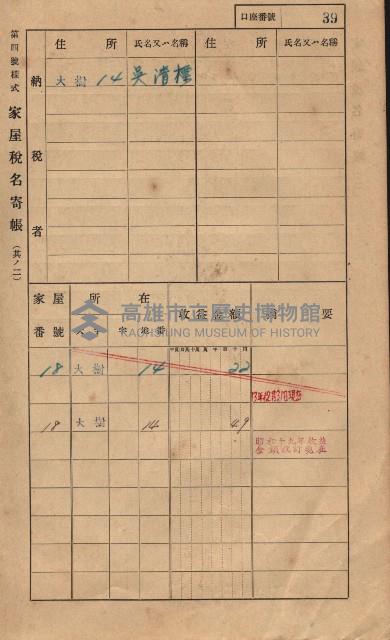 口座番號 39
第四號樣式 家屋稅名寄帳 (其ノ二)
納稅者
住所 氏名又ハ名稱 住所 氏名又ハ名稱
大樹 14 吳清標
家屋番號 所在 收益金額 摘要
高雄市立歷史博物館
KAOHSIUNG MUSEUM OF HISTORY
18 大樹 14 22
18 大樹 14 49
昭和十九年收益
金額改訂